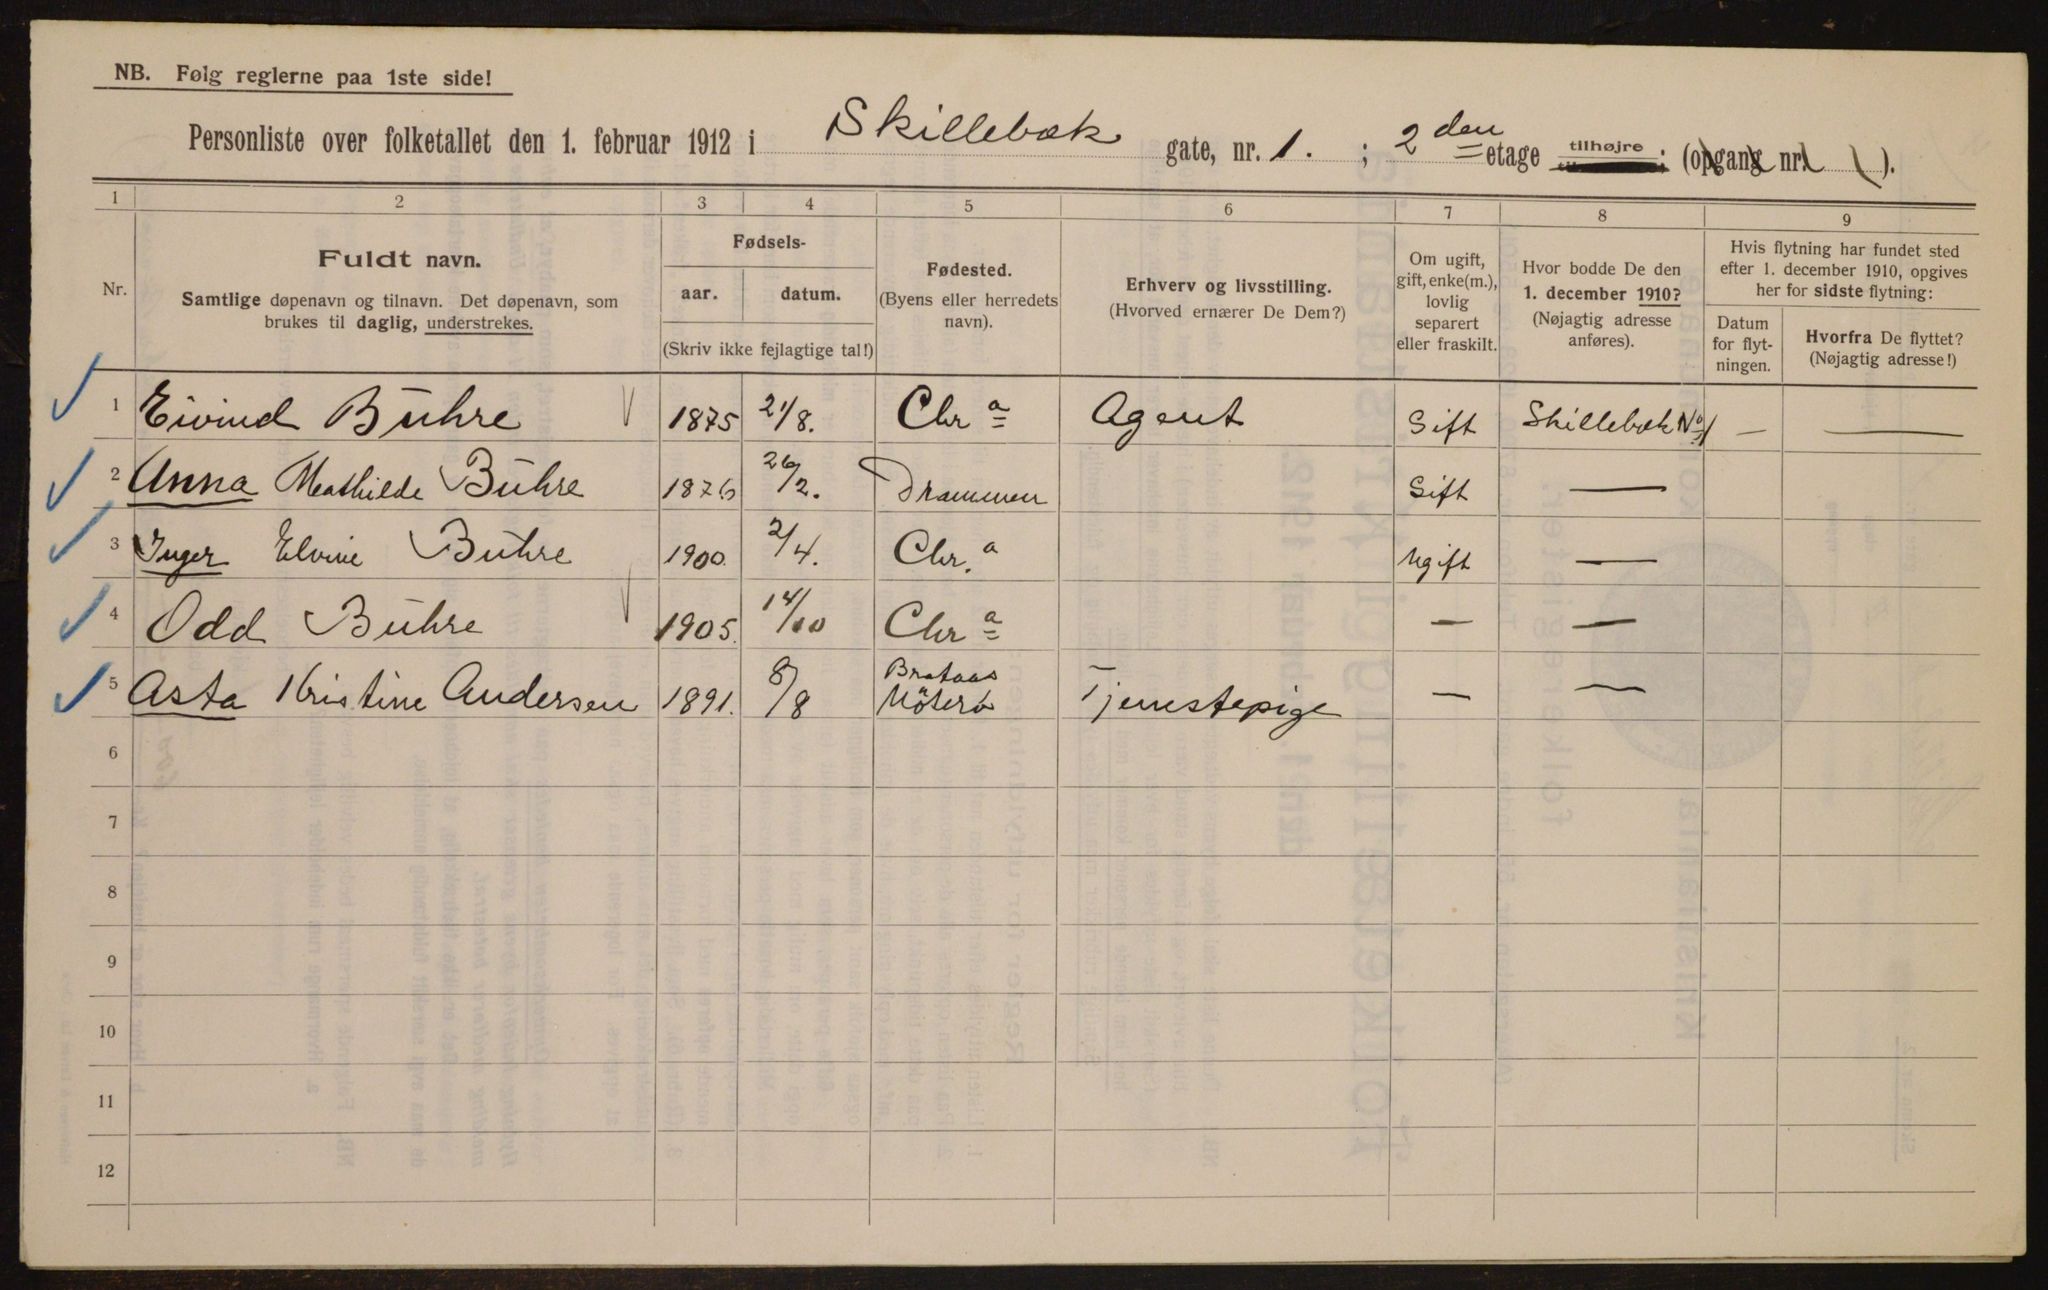 NB. Følg reglerne paa 1ste side!
Personliste over folketallet den 1. februar 1912 i Skillebæk gate, nr. 1. ; 2den etage tilhøjre ; (opgang nr. ).
1 2 3 4 5 6 7 8 9
Nr.
Fuldt navn.
Samtlige døpenavn og tilnavn. Det døpenavn, som
brukes til daglig, understrekes.
Fødsels-
aar. datum.
(Skriv ikke fejlagtige tal!)
Fødested.
(Byens eller herredets
navn).
Erhverv og livsstilling.
(Hvorved ernærer De Dem?)
Om ugift,
gift, enke(m.),
lovlig
separert
eller fraskilt.
Hvor bodde De den
1. december 1910?
(Nøjagtig adresse
anføres).
Hvis flytning har fundet sted
efter 1. december 1910, opgives
her for sidste flytning:
Datum
for flyt-
ningen.
Hvorfra De flyttet?
(Nøjagtig adresse!)
1 Eivind Bühre 1875 21/8. Chr a Agent Gift Skillebæk No 1 — —
2 Anna Mathilde Bühre 1876 26/2. Drammen Gift —
3 Inger Elvine Bühre 1900. 2/4. Chr. a Ugift —
4 Odd Bühre 1905. 14/10 Chr a — —
5 Asta Kristine Andersen 1891. 8/8 Brataas Nöterö Tjenestepige — —
6
7
8
9
10
11
12